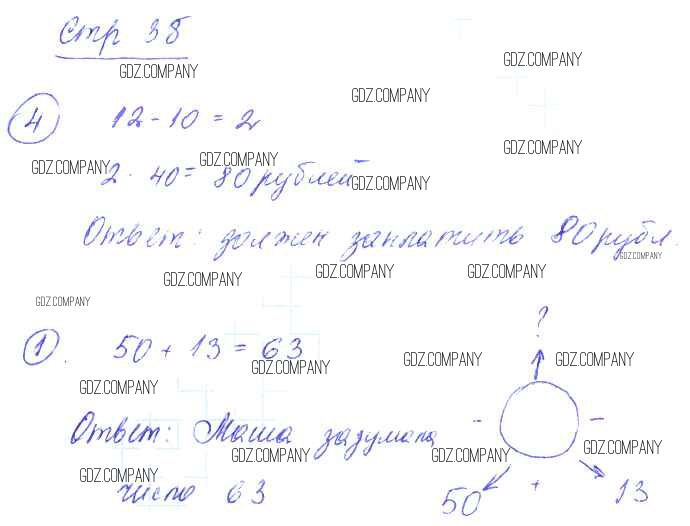 Стр 38
GDZ.COMPANY
GDZ.COMPANY
GDZ.COMPANY
4 12 - 10 = 2
GDZ.COMPANY
GDZ.COMPANY GDZ.COMPANY
2 · 40 = 80 рублей GDZ.COMPANY
Ответ: должен заплатить 80 рубл.
GDZ.COMPANY
GDZ.COMPANY GDZ.COMPANY GDZ.COMPANY
GDZ.COMPANY
?
1. 50 + 13 = 63
GDZ.COMPANY GDZ.COMPANY GDZ.COMPANY
GDZ.COMPANY
Ответ: Маша задумала - -
GDZ.COMPANY GDZ.COMPANY GDZ.COMPANY
GDZ.COMPANY
число 63 50 + 13